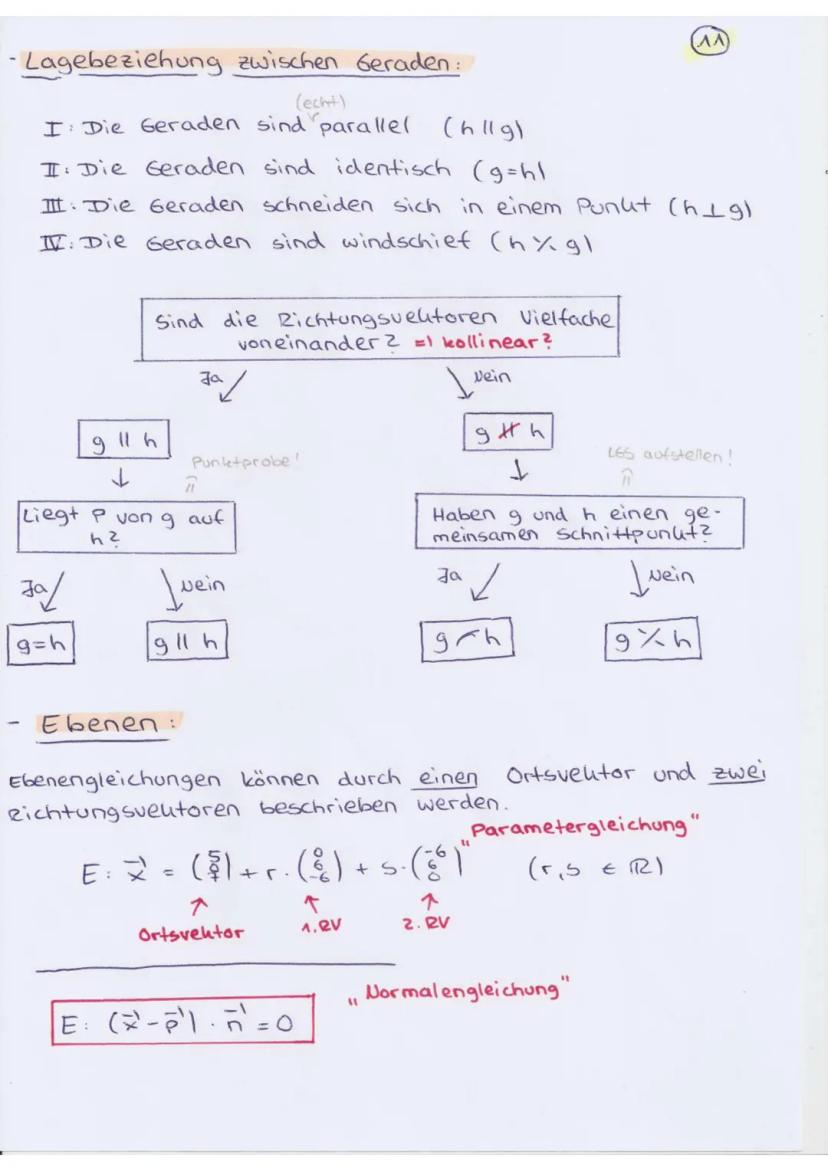 11
- Lagebeziehung zwischen Geraden:
(echt)
I: Die Geraden sind parallel (h || g)
II: Die Geraden sind identisch (g=h)
III: Die Geraden schneiden sich in einem Punkt (h ⊥ g)
IV: Die Geraden sind windschief (h ⁒ g)
Sind die Richtungsvektoren Vielfache
voneinander? ⇒ kollinear?
Ja
Nein
g || h
g ∦ h
Punktprobe!
LGS aufstellen!
Liegt P von g auf
h?
Haben g und h einen ge-
meinsamen Schnittpunkt?
Ja
Nein
Ja
Nein
g=h
g || h
g ⌢ h
g ⁒ h
- Ebenen:
Ebenengleichungen können durch einen Ortsvektor und zwei
Richtungsvektoren beschrieben werden.
"Parametergleichung"
E: x⃗ = (5 0 7) + r · (0 6 -6) + s · (-6 6 0) (r,s ∈ ℝ)
Ortsvektor
1. RV
2. RV
"Normalengleichung"
E: (x⃗ - p⃗) · n⃗ = 0